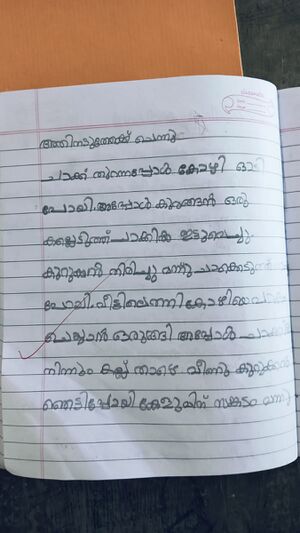 അതിനടുത്തേക്ക് ചെന്നു
ചാക്ക് തുറന്നപ്പോൾ കോഴി ഓടി
പോയി. അപ്പോൾ കുരങ്ങൻ ഒരു
കല്ലെടുത്ത് ചാക്കിൽ ഇട്ടുവെച്ചു.
കുറുക്കൻ തിരിച്ചു വന്നു ചാക്കെടുത്ത്
പോയി. വീട്ടിലെത്തി കോഴിയെ
ചെയ്യാൻ ഒരുങ്ങി അപ്പോൾ
നിന്നും കല്ല് താഴെ വീണു കുറുക്കൻ
ഞെട്ടിപ്പോയി സങ്കടം വന്നു